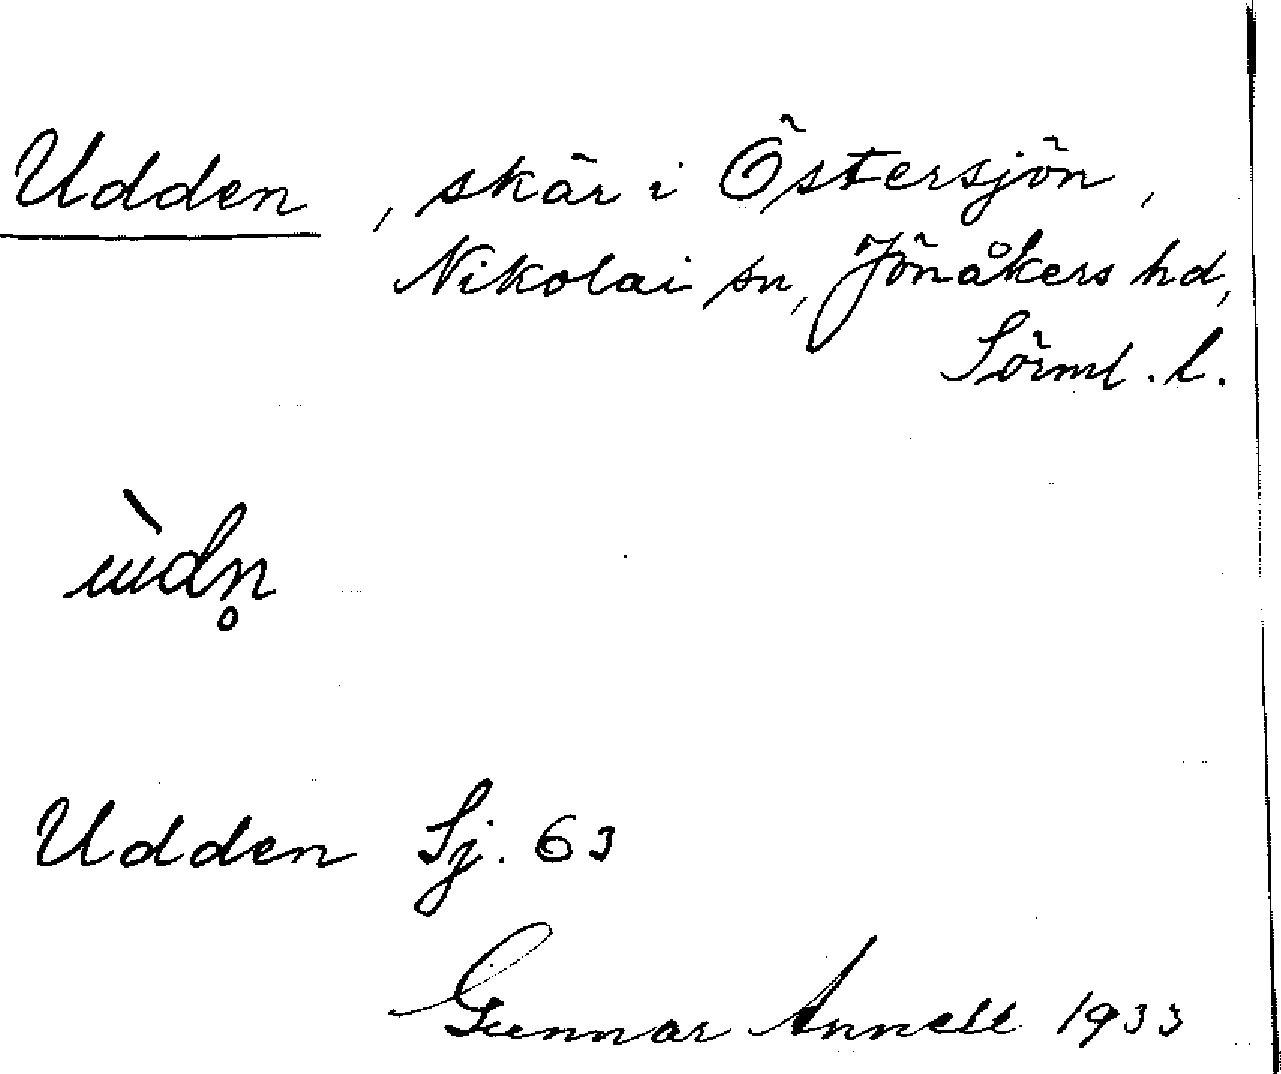 Udden, skär i Östersjön,
Nikolai sn, Jönåkers hd,
Sörml. l.
ɯ̀dn̥
Udden Sj. 63
Gunnar Annell 1933